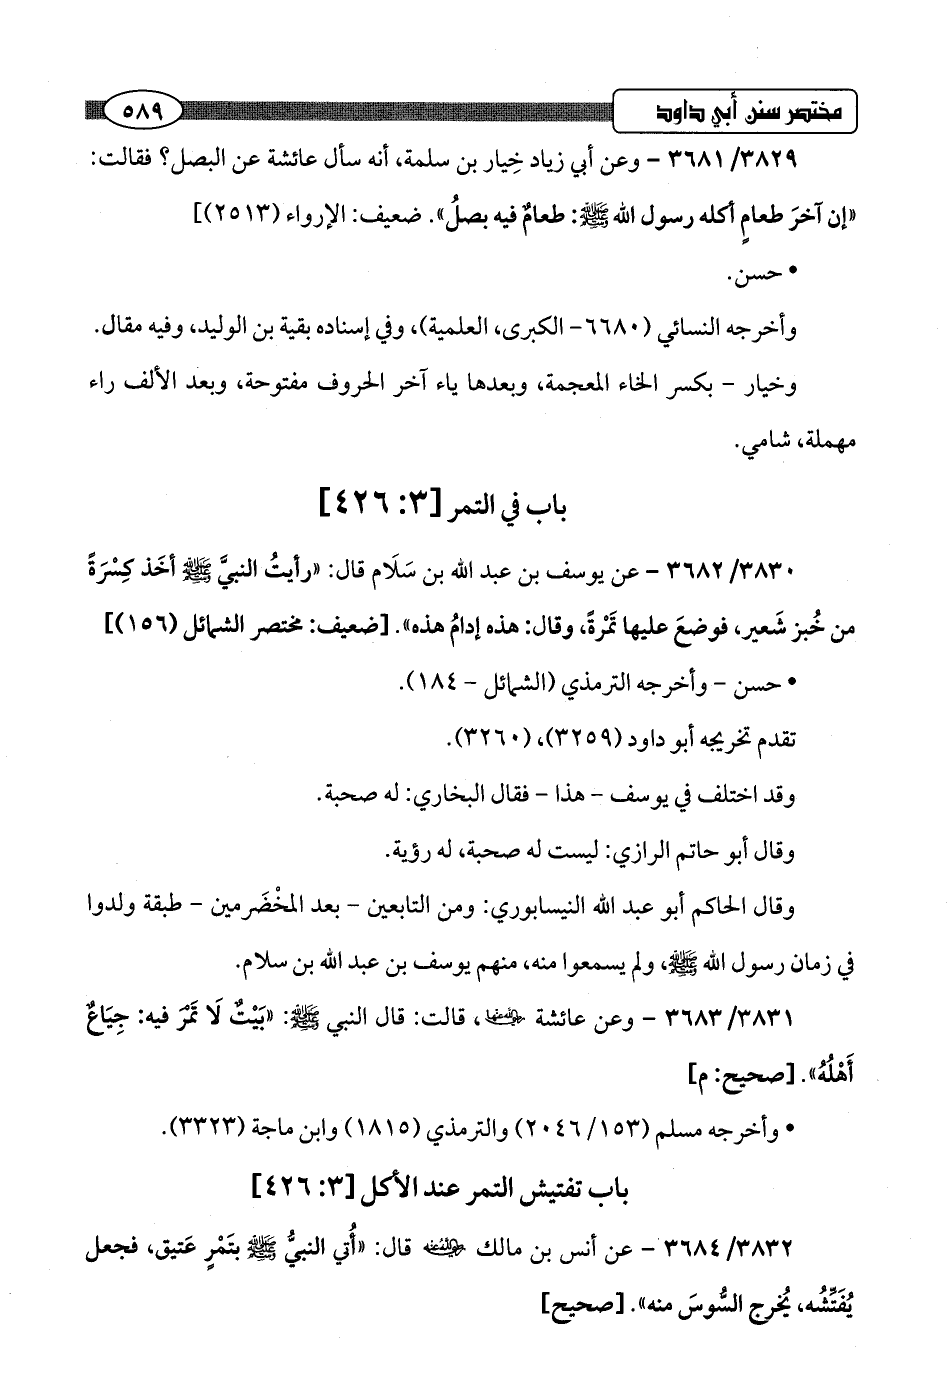 مختصر سنن أبي داود
٥٨٩
٣٦٨١/٣٨٢٩ - وعن أبي زياد خِيار بن سلمة، أنه سأل عائشة عن البصل؟ فقالت:
«إن آخرَ طعامٍ أكله رسول الله ﷺ: طعامٌ فيه بصلُ». ضعيف: الإرواء (٢٥١٣)]
• حسن.
وأخرجه النسائي (٦٦٨٠- الكبرى، العلمية)، وفي إسناده بقية بن الوليد، وفيه مقال.
وخيار - بكسر الخاء المعجمة، وبعدها ياء آخر الحروف مفتوحة، وبعد الألف راء
مهملة، شامي.
باب في التمر [٣: ٤٢٦]
٣٦٨٢/٣٨٣٠ - عن يوسف بن عبد الله بن سَلَام قال: «رأيتُ النبيَّ ﷺ أخَذ كِسْرَةً
من خُبز شَعير، فوضعَ عليها تَمْرةً، وقال: هذه إدامُ هذه». [ضعيف: مختصر الشمائل (١٥٦)]
• حسن - وأخرجه الترمذي (الشمائل - ١٨٤).
تقدم تخريجه أبو داود (٣٢٥٩)، (٣٢٦٠).
وقد اختلف في يوسف - هذا - فقال البخاري: له صحبة.
وقال أبو حاتم الرازي: ليست له صحبة، له رؤية.
وقال الحاكم أبو عبد الله النيسابوري: ومن التابعين - بعد المخْضَرمين - طبقة ولدوا
في زمان رسول الله ﷺ، ولم يسمعوا منه، منهم يوسف بن عبد الله بن سلام.
٣٦٨٣/٣٨٣١ - وعن عائشة رضي الله عنها، قالت: قال النبي ﷺ: «بَيْتٌ لَا تَمْرَ فيه: جِيَاعٌ
أَهْلُهُ». [صحيح: م]
• وأخرجه مسلم (٢٠٤٦/١٥٣) والترمذي (١٨١٥) وابن ماجة (٣٣٢٣).
باب تفتيش التمر عند الأكل [٣: ٤٢٦]
٣٦٨٤/٣٨٣٢ - عن أنس بن مالك رضي الله عنه قال: «أُتي النبيُّ ﷺ بتَمْرٍ عَتيق، فجعل
يُفَتِّشُه، يُخرج السُّوسَ منه». [صحيح]